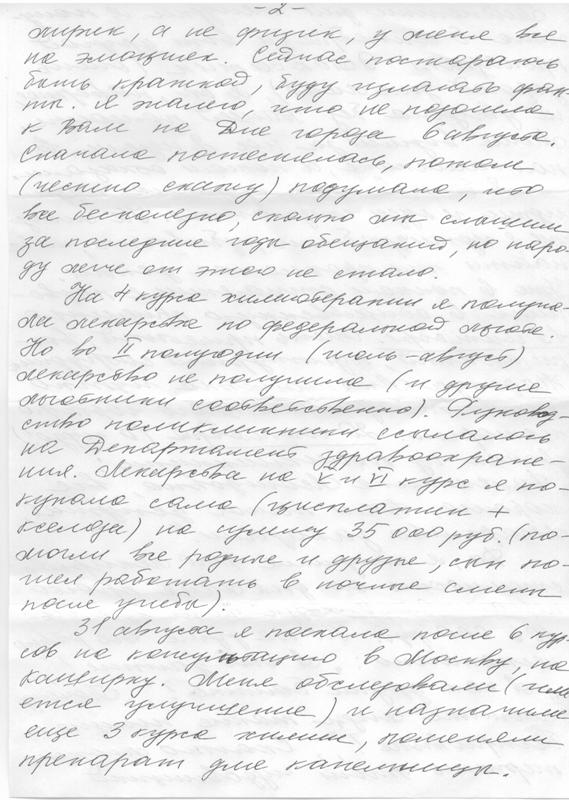 - 2 -
лирик, а не физик, у меня все
на эмоциях. Сейчас постараюсь
быть краткой, буду излагать фак-
ты. Я жалею, что не подошла
к Вам на Дне города 6 августа.
Сначала постеснялась, потом
(честно скажу) подумала, что
все бесполезно, сколько мы слышим
за последние годы обещаний, но наро-
ду легче от этого не стало.
На 4 курса химиотерапии я получа-
ла лекарства по федеральной льготе.
Но во II полугодии (июль-август)
лекарство не получила (и другие
льготники соответственно). Руковод-
ство поликлиники ссылалось
на Департамент здравоохране-
ния. Лекарства на V и VI курс я по-
купала сама (цисплатин +
кселода) на сумму 35 000 руб. (по-
могли все родные и друзья, сын по-
шел работать в ночные смены
после учебы).
31 августа я поехала после 6 кур-
сов на консультацию в Москву, на
Каширку. Меня обследовали (име-
ется улучшение) и назначили
еще 3 курса химии, поменяли
препарат для капельницы.